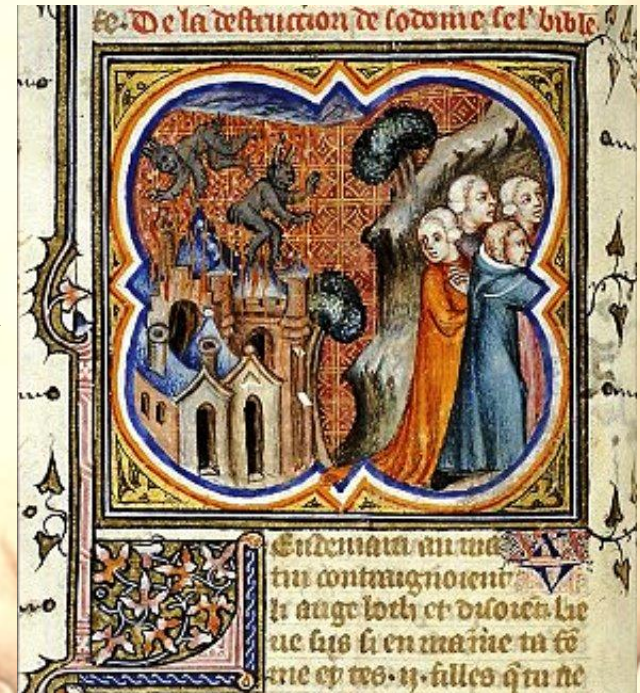 te. De la destruction de sodome sel' bible
Lendemain au ma
tin contraignoient
li ange loth et disoient lie
ue sus si en maine ta fē
me et tes .ij. filles q̄ tu ne